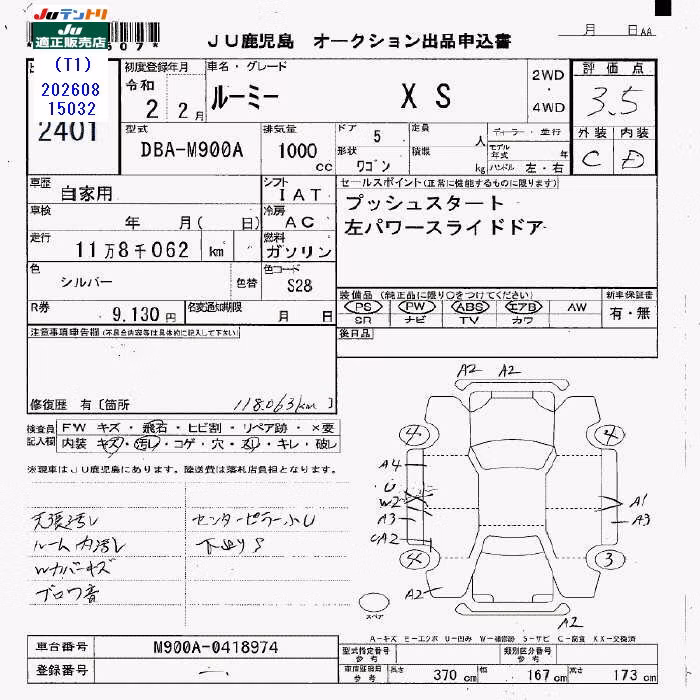 Juテントリ
Ju
適正販売店
JU鹿児島 オークション出品申込書
月 日 AA
(T1)
202608
15032
2401
初度登録年月
令和
2 2月
車名・グレード
ルーミー XS
2WD
・
4WD
評価点
3.5
外装 内装
C D
型式
DBA-M900A
排気量
1000
cc
ドア
5
形状
ワゴン
定員
人
積載
kg
ディーラー・並行
モデル年式
年
ハンドル 左・右
車歴
自家用
シフト
IAT
車検
年 月( 日)
冷房
AC
走行
11万8千062 km
燃料
ガソリン
色
シルバー
色替
色コード
S28
R券
9,130 円
名変通知期限
月 日
セールスポイント(正常に機能するものに限ります)
プッシュスタート
左パワースライドドア
装備品(純正品に限り○をつけてください)
PS PW ABS エアB AW
SR ナビ TV カワ
新車保証書
有・無
後日品
注意事項申告欄(不具合内容等は具体的に記入して下さい)
修復歴 有〔箇所 118,063km〕
検査員
記入欄
FW キズ・飛石・ヒビ割・リペア跡・×要
内装 キズ・汚レ・コゲ・穴・スレ・キレ・破レ
※現車はJU鹿児島にあります。陸送費は落札店負担となります。
天張汚レ
センターピラー小U
ルーム内汚レ
下廻りS
Wカバーキズ
ブロワ音
A2 A2
4 4
A4
U
W2
A3
A1
A3
4 3
A2
A2
スペア
A-キズ E-エクボ U-凹み W-補修跡 S-サビ C-腐食 XX-交換済
車台番号
M900A-0418974
登録番号
型式指定番号
参考
類別区分番号
参考
車検証記載
参考
長さ 370 cm
幅 167 cm
高さ 173 cm